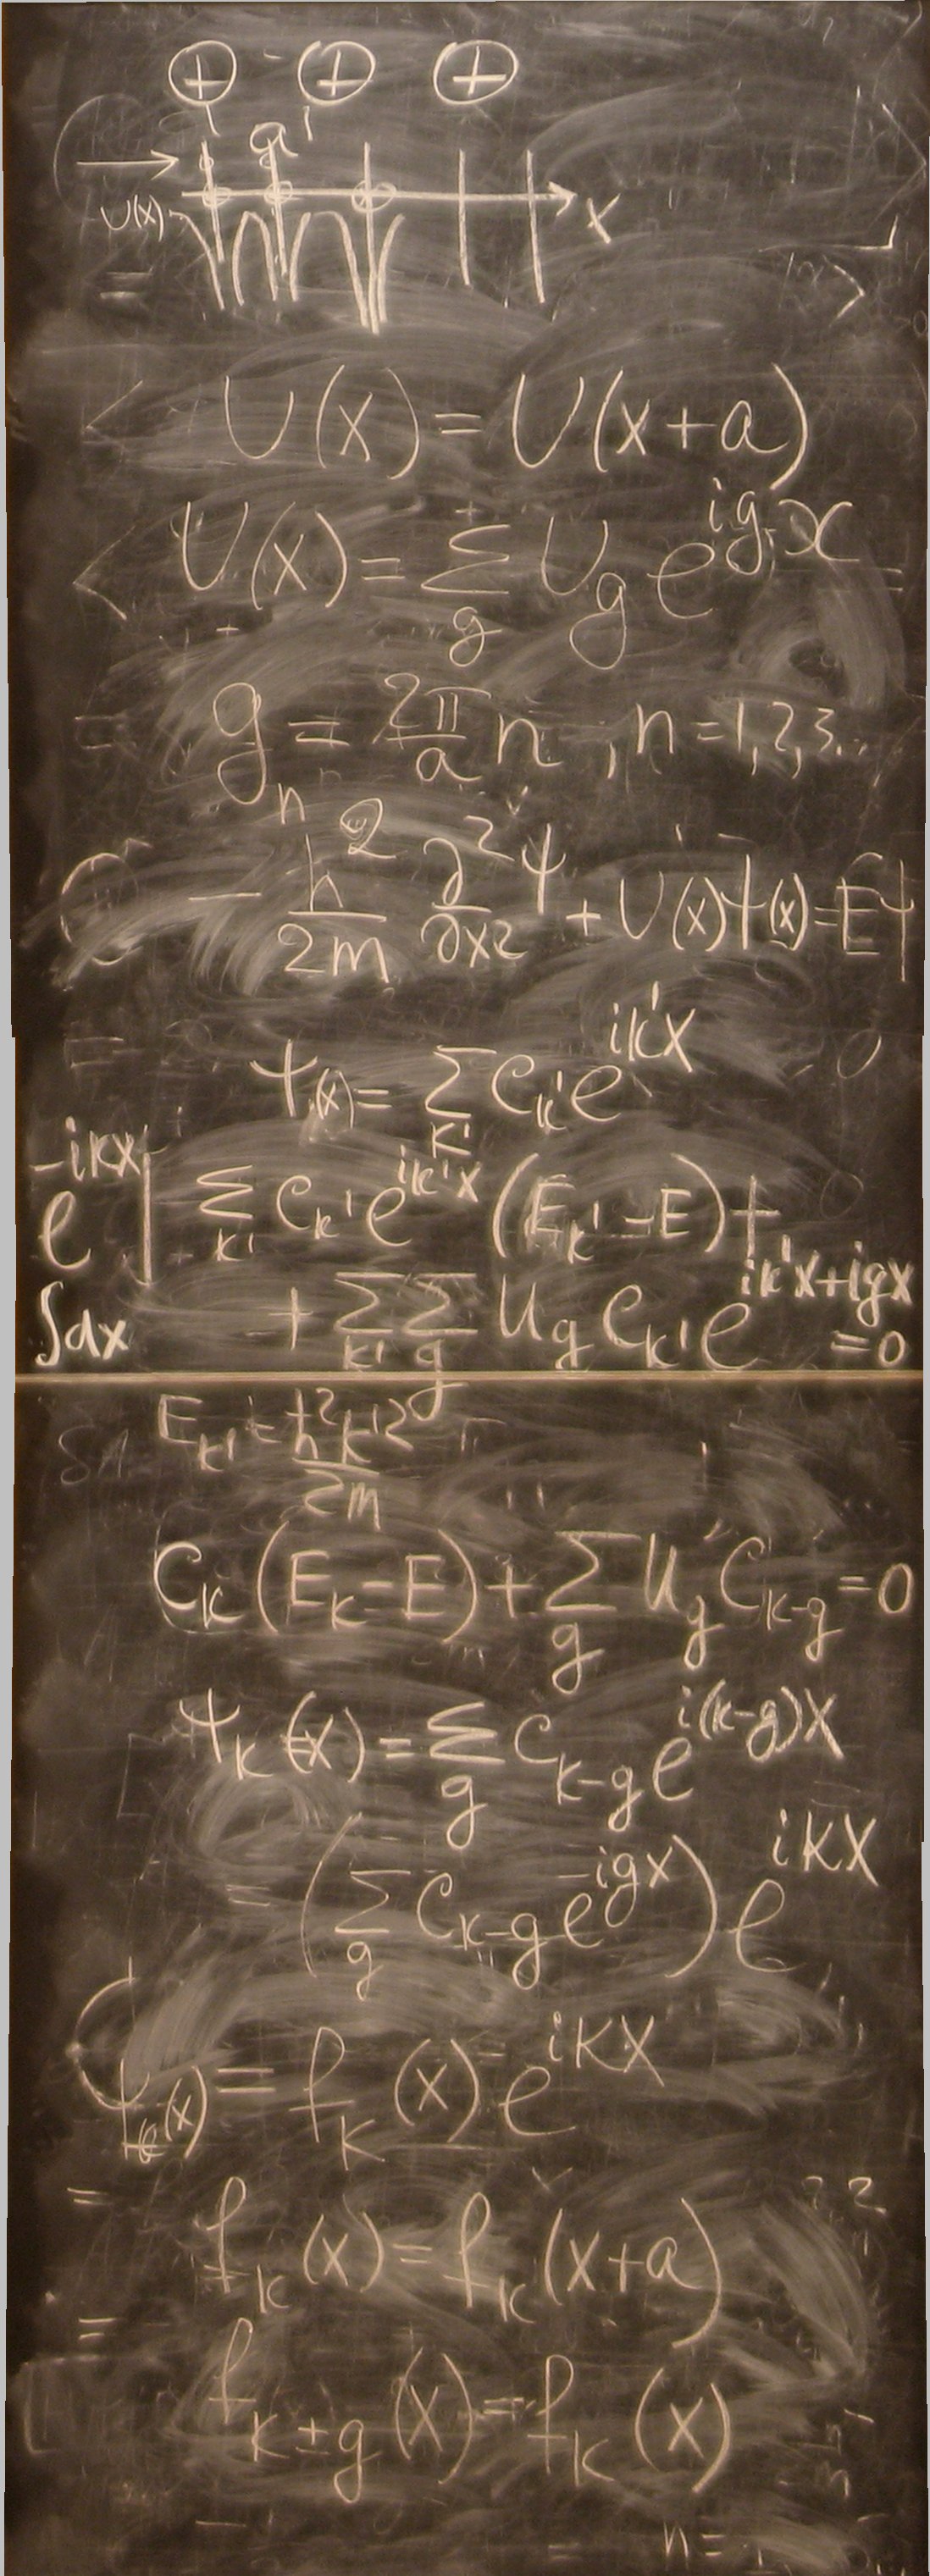 + + +
a
U(x) x
U(x) = U(x+a)
U(x) = Σ_g U_g e^{igx}
g_n = 2π/a n , n = 1,2,3..
- ħ²/2m ∂²ψ/∂x² + U(x)ψ(x) = Eψ
ψ(x) = Σ_{k'} C_{k'} e^{ik'x}
e^{-ikx} | Σ_{k'} C_{k'} e^{ik'x} (E_{k'} - E) +
∫dx + Σ_{k'} Σ_g U_g C_{k'} e^{ik'x+igx} = 0
E_{k'} = ħ²k'²/2m
C_k (E_k - E) + Σ_g U_g C_{k-g} = 0
ψ_k(x) = Σ_g C_{k-g} e^{i(k-g)x}
= (Σ_g C_{k-g} e^{-igx}) e^{ikx}
ψ_k(x) = f_k(x) e^{ikx}
f_k(x) = f_k(x+a)
f_{k±g}(x) = f_k(x)
n =